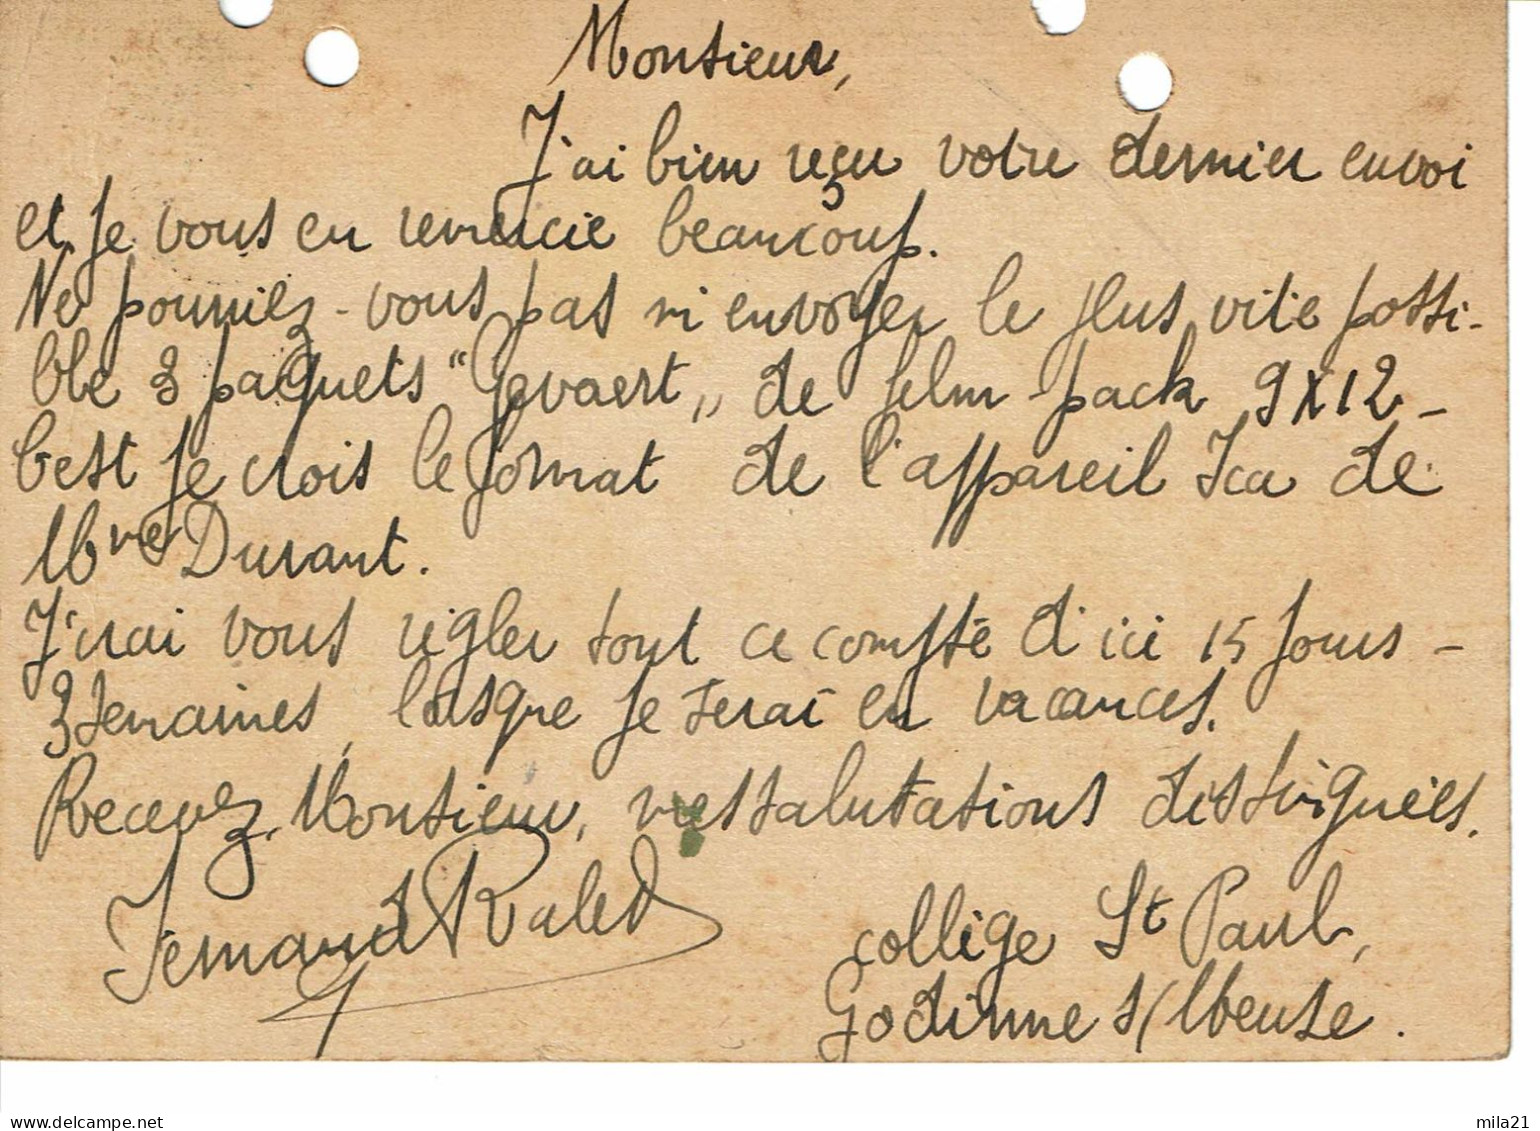 Monsieur,
J'ai bien reçu votre dernier envoi
et je vous en remercie beaucoup.
Ne pourriez-vous pas m'envoyer le plus vite possi-
ble 3 paquets "Gevaert„ de film-pack 9X12 -
C'est je crois le format de l'appareil Ica de
Mme Durant.
J'irai vous régler tout ce compte d'ici 15 jours -
3 semaines, lorsque je serai en vacances.
Recevez, Monsieur, mes salutations distinguées.
Fernand
collège St Paul,
Godinne s/Meuse.
delcampe.net
mila21